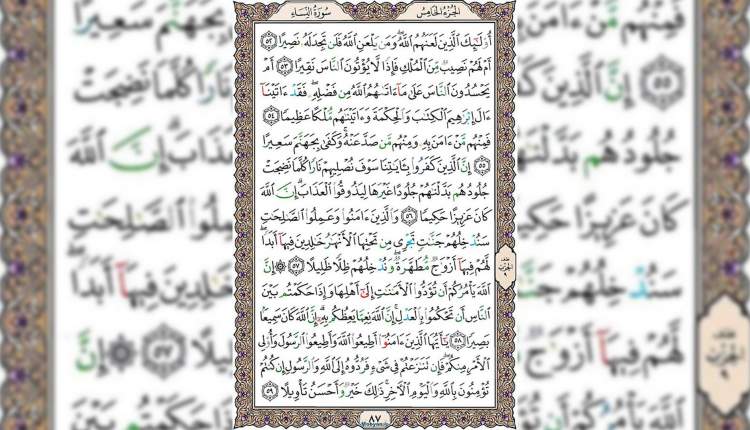 الجزء الخامس
سورة النساء
أُوْلَٰٓئِكَ ٱلَّذِينَ لَعَنَهُمُ ٱللَّهُ وَمَن يَلْعَنِ ٱللَّهُ فَلَن تَجِدَ لَهُۥ نَصِيرًا ٥٢
أَمْ لَهُمْ نَصِيبٌ مِّنَ ٱلْمُلْكِ فَإِذًا لَّا يُؤْتُونَ ٱلنَّاسَ نَقِيرًا ٥٣ أَمْ
يَحْسُدُونَ ٱلنَّاسَ عَلَىٰ مَآ ءَاتَىٰهُمُ ٱللَّهُ مِن فَضْلِهِۦ فَقَدْ ءَاتَيْنَآ
ءَالَ إِبْرَٰهِيمَ ٱلْكِتَٰبَ وَٱلْحِكْمَةَ وَءَاتَيْنَٰهُم مُّلْكًا عَظِيمًا ٥٤
فَمِنْهُم مَّنْ ءَامَنَ بِهِۦ وَمِنْهُم مَّن صَدَّ عَنْهُ وَكَفَىٰ بِجَهَنَّمَ سَعِيرًا
٥٥ إِنَّ ٱلَّذِينَ كَفَرُوا۟ بِـَٔايَٰتِنَا سَوْفَ نُصْلِيهِمْ نَارًا كُلَّمَا نَضِجَتْ
جُلُودُهُم بَدَّلْنَٰهُمْ جُلُودًا غَيْرَهَا لِيَذُوقُوا۟ ٱلْعَذَابَ إِنَّ ٱللَّهَ
كَانَ عَزِيزًا حَكِيمًا ٥٦ وَٱلَّذِينَ ءَامَنُوا۟ وَعَمِلُوا۟ ٱلصَّٰلِحَٰتِ
سَنُدْخِلُهُمْ جَنَّٰتٍ تَجْرِى مِن تَحْتِهَا ٱلْأَنْهَٰرُ خَٰلِدِينَ فِيهَآ أَبَدًا
لَّهُمْ فِيهَآ أَزْوَٰجٌ مُّطَهَّرَةٌ وَنُدْخِلُهُمْ ظِلًّا ظَلِيلًا ٥٧ ۞ إِنَّ
ٱللَّهَ يَأْمُرُكُمْ أَن تُؤَدُّوا۟ ٱلْأَمَٰنَٰتِ إِلَىٰٓ أَهْلِهَا وَإِذَا حَكَمْتُم بَيْنَ
ٱلنَّاسِ أَن تَحْكُمُوا۟ بِٱلْعَدْلِ إِنَّ ٱللَّهَ نِعِمَّا يَعِظُكُم بِهِۦٓ إِنَّ ٱللَّهَ كَانَ سَمِيعًۢا
بَصِيرًا ٥٨ يَٰٓأَيُّهَا ٱلَّذِينَ ءَامَنُوٓا۟ أَطِيعُوا۟ ٱللَّهَ وَأَطِيعُوا۟ ٱلرَّسُولَ وَأُو۟لِى
ٱلْأَمْرِ مِنكُمْ فَإِن تَنَٰزَعْتُمْ فِى شَىْءٍ فَرُدُّوهُ إِلَى ٱللَّهِ وَٱلرَّسُولِ إِن كُنتُمْ
تُؤْمِنُونَ بِٱللَّهِ وَٱلْيَوْمِ ٱلْءَاخِرِ ذَٰلِكَ خَيْرٌ وَأَحْسَنُ تَأْوِيلًا ٥٩
٨٧